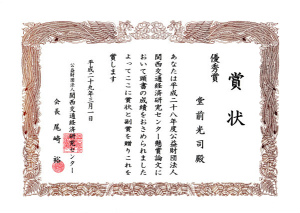 賞状
優秀賞
堂前光司殿
あなたは平成二十八年度公益財団法人
関西交通経済研究センター懸賞論文に
おいて頭書の成績をおさめられました
よってここに賞状と副賞を贈りこれを
賞します
平成二十九年三月一日
公益財団法人関西交通経済研究センター
会長 尾崎 裕